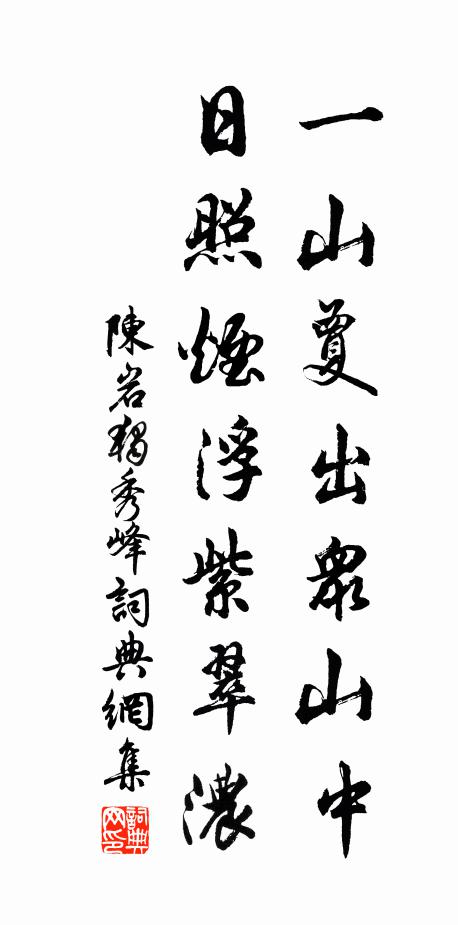 一山夐出眾山中
日照煙浮紫翠濃
陳岩獨秀峰詞典網集
詞典网印